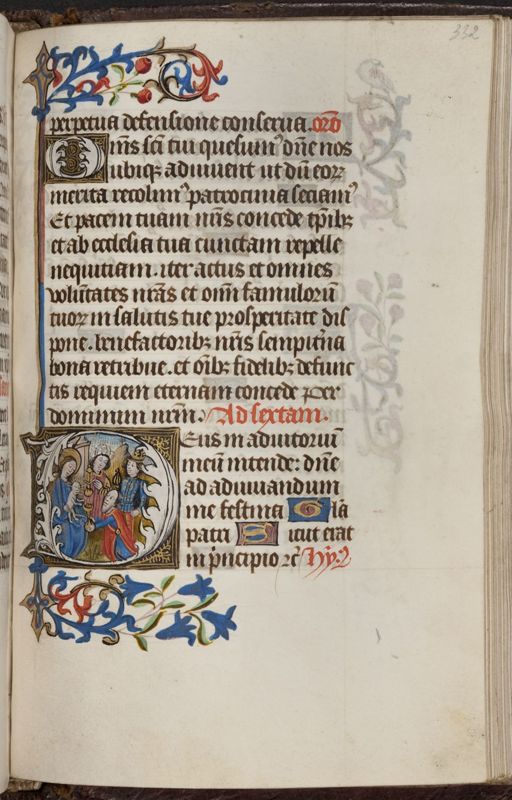 332
perpetua defensione conserua. oro
Oms sci tui quesum' dne nos
ubiqz adiuuent ut dum eoꝝ
merita recolim' patrocinia seciam'
Et pacem tuam nris concede tpibz
et ab ecclesia tua cunctam repelle
nequitiam. iter actus et omnes
volutates nras et oim famulorum
tuoꝝ in salutis tue prosperitate dis
pone. benefactoribz nris sempitna
bona retribue. et oibz fidelibz defunc
tis requiem eternam concede Per
dominum nrm. Ad sextam.
Deus in adiutoriu
meu intende: dne
ad adiuuandum
me festina Gla
patri Sicut erat
in principio ⁊c Hy